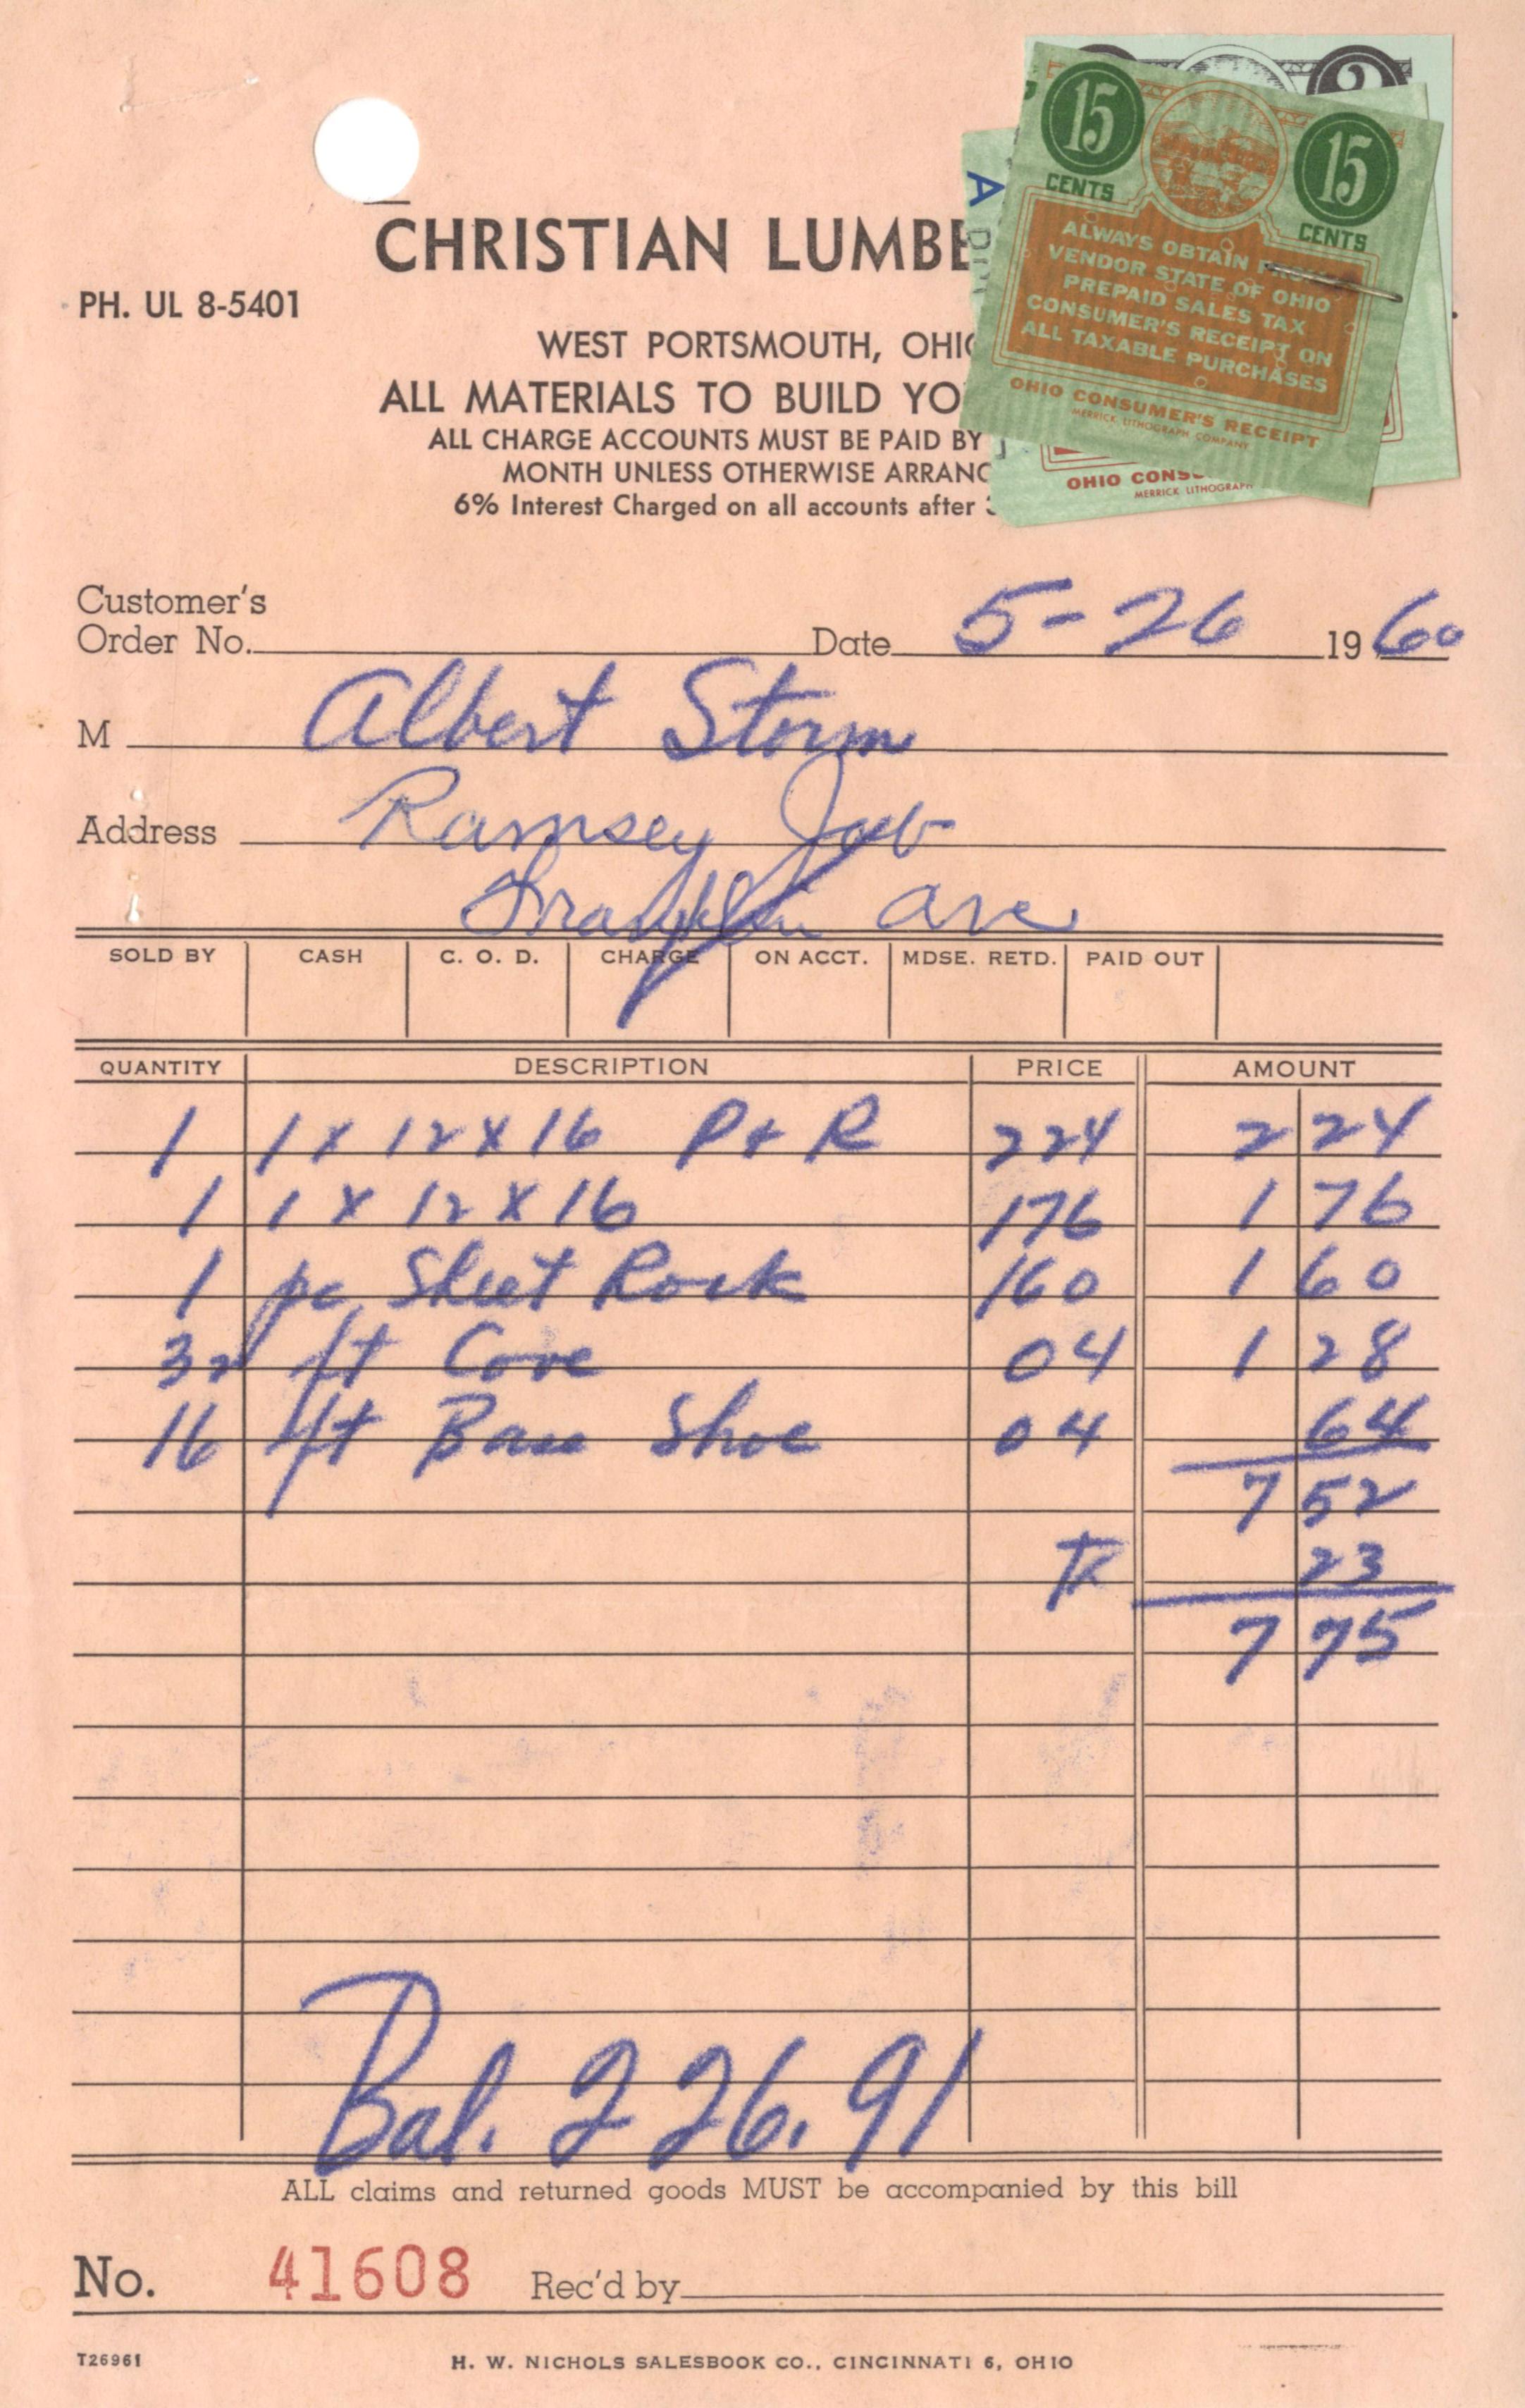 15 CENTS 15 CENTS
ALWAYS OBTAIN FROM
VENDOR STATE OF OHIO
PREPAID SALES TAX
CONSUMER'S RECEIPT ON
ALL TAXABLE PURCHASES
OHIO CONSUMER'S RECEIPT
MERRICK LITHOGRAPH COMPANY
A
OHIO CONSU
MERRICK LITHOGRAPH
CHRISTIAN LUMBE
PH. UL 8-5401
WEST PORTSMOUTH, OHIO
ALL MATERIALS TO BUILD YO
ALL CHARGE ACCOUNTS MUST BE PAID BY
MONTH UNLESS OTHERWISE ARRANG
6% Interest Charged on all accounts after 3
Customer's
Order No. Date 5-26 1960
M Albert Storm
Address Ramsey Job
Franklin Ave
SOLD BY CASH C. O. D. CHARGE ON ACCT. MDSE. RETD. PAID OUT
QUANTITY DESCRIPTION PRICE AMOUNT
1 1 X 12 X 16 P + R 224 2 24
1 1 X 12 X 16 176 1 76
1 pc. Sheet Rock 160 1 60
32 ft Cove 04 1 28
16 ft Base Shoe 04 64
7 52
TX 23
7 75
Bal. 226.91
ALL claims and returned goods MUST be accompanied by this bill
No. 41608 Rec'd by
T26961 H. W. NICHOLS SALESBOOK CO., CINCINNATI 6, OHIO